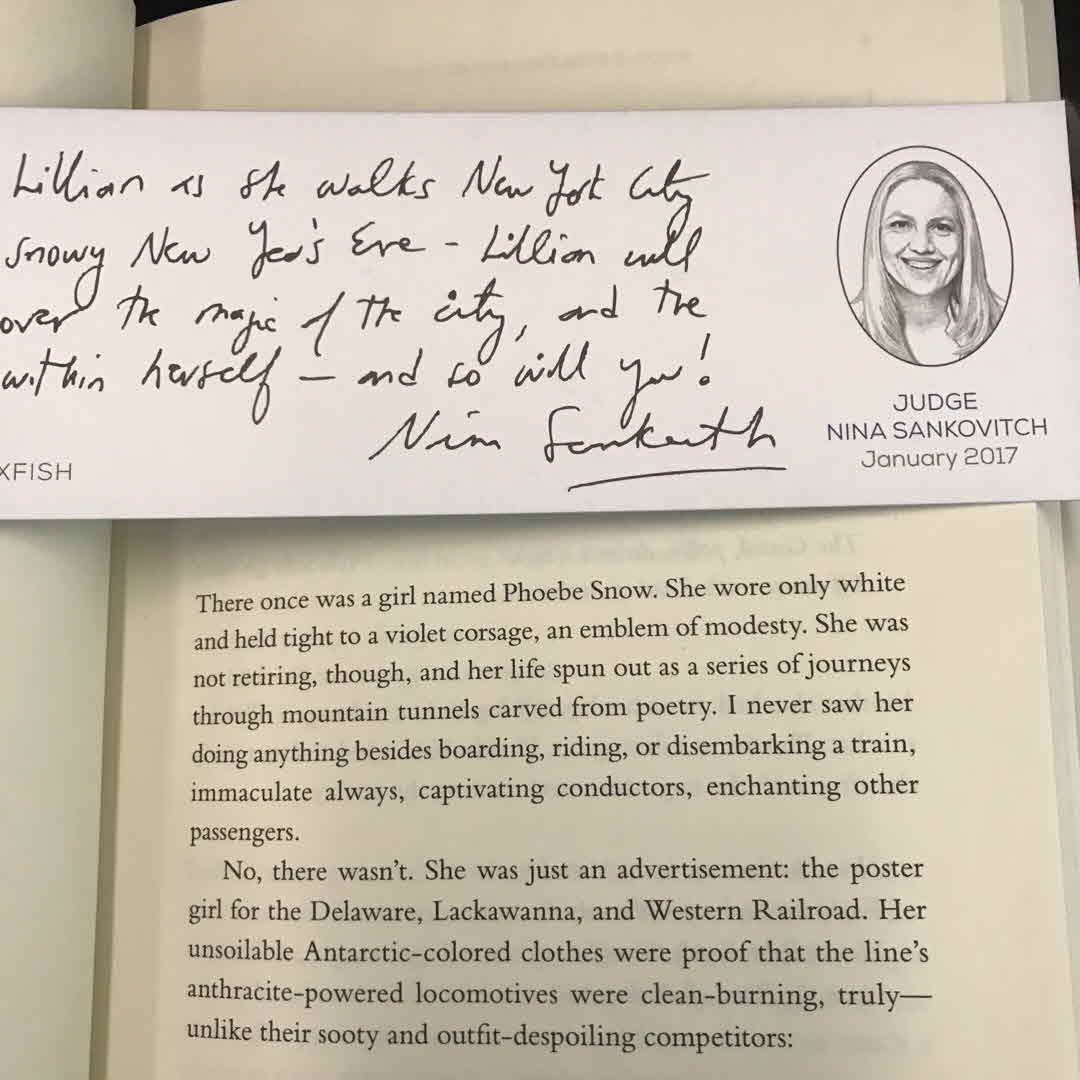 Lillian as she walks New York City
snowy New Year's Eve - Lillian will
over the magic of the city, and the
within herself - and so will you!
Nina Sankovitch
XFISH
JUDGE
NINA SANKOVITCH
January 2017
There once was a girl named Phoebe Snow. She wore only white
and held tight to a violet corsage, an emblem of modesty. She was
not retiring, though, and her life spun out as a series of journeys
through mountain tunnels carved from poetry. I never saw her
doing anything besides boarding, riding, or disembarking a train,
immaculate always, captivating conductors, enchanting other
passengers.
No, there wasn't. She was just an advertisement: the poster
girl for the Delaware, Lackawanna, and Western Railroad. Her
unsoilable Antarctic-colored clothes were proof that the line's
anthracite-powered locomotives were clean-burning, truly—
unlike their sooty and outfit-despoiling competitors: